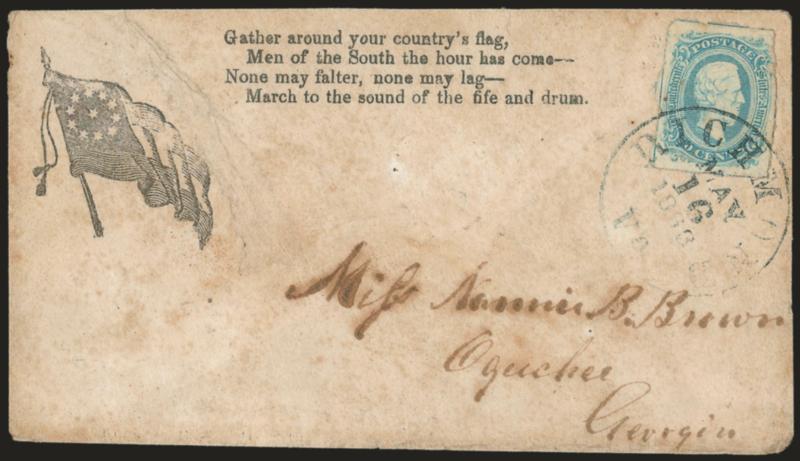 Gather around your country's flag,
Men of the South the hour has come--
None may falter, none may lag—
March to the sound of the fife and drum.
POSTAGE
CENTS
RICHMOND
MAY
16
1863
Va
Miss Nannie B. Brown
Oguchee
Georgia